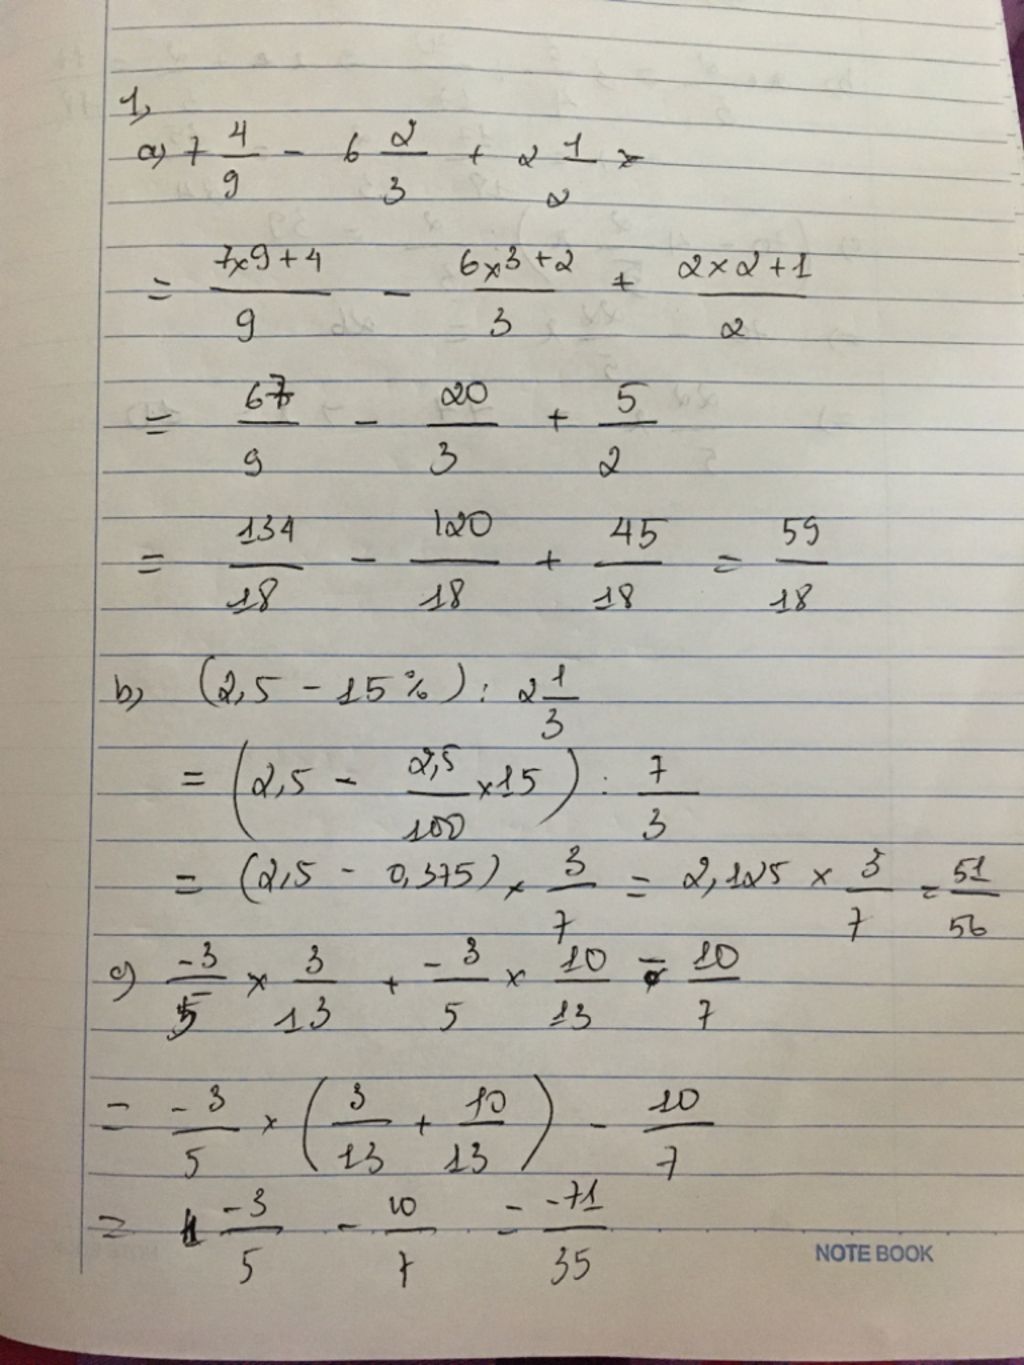 1,
a) 7 4/9 - 6 2/3 + 2 1/2
= (7×9+4)/9 - (6×3+2)/3 + (2×2+1)/2
= 67/9 - 20/3 + 5/2
= 134/18 - 120/18 + 45/18 = 59/18
b) (2,5 - 15%) : 2 1/3
= (2,5 - 2,5/100 ×15) : 7/3
= (2,5 - 0,375) × 3/7 = 2,125 × 3/7 = 51/56
c) -3/5 × 3/13 + -3/5 × 10/13 - 10/7
= -3/5 × (3/13 + 10/13) - 10/7
= -3/5 - 10/7 = -71/35
NOTE BOOK